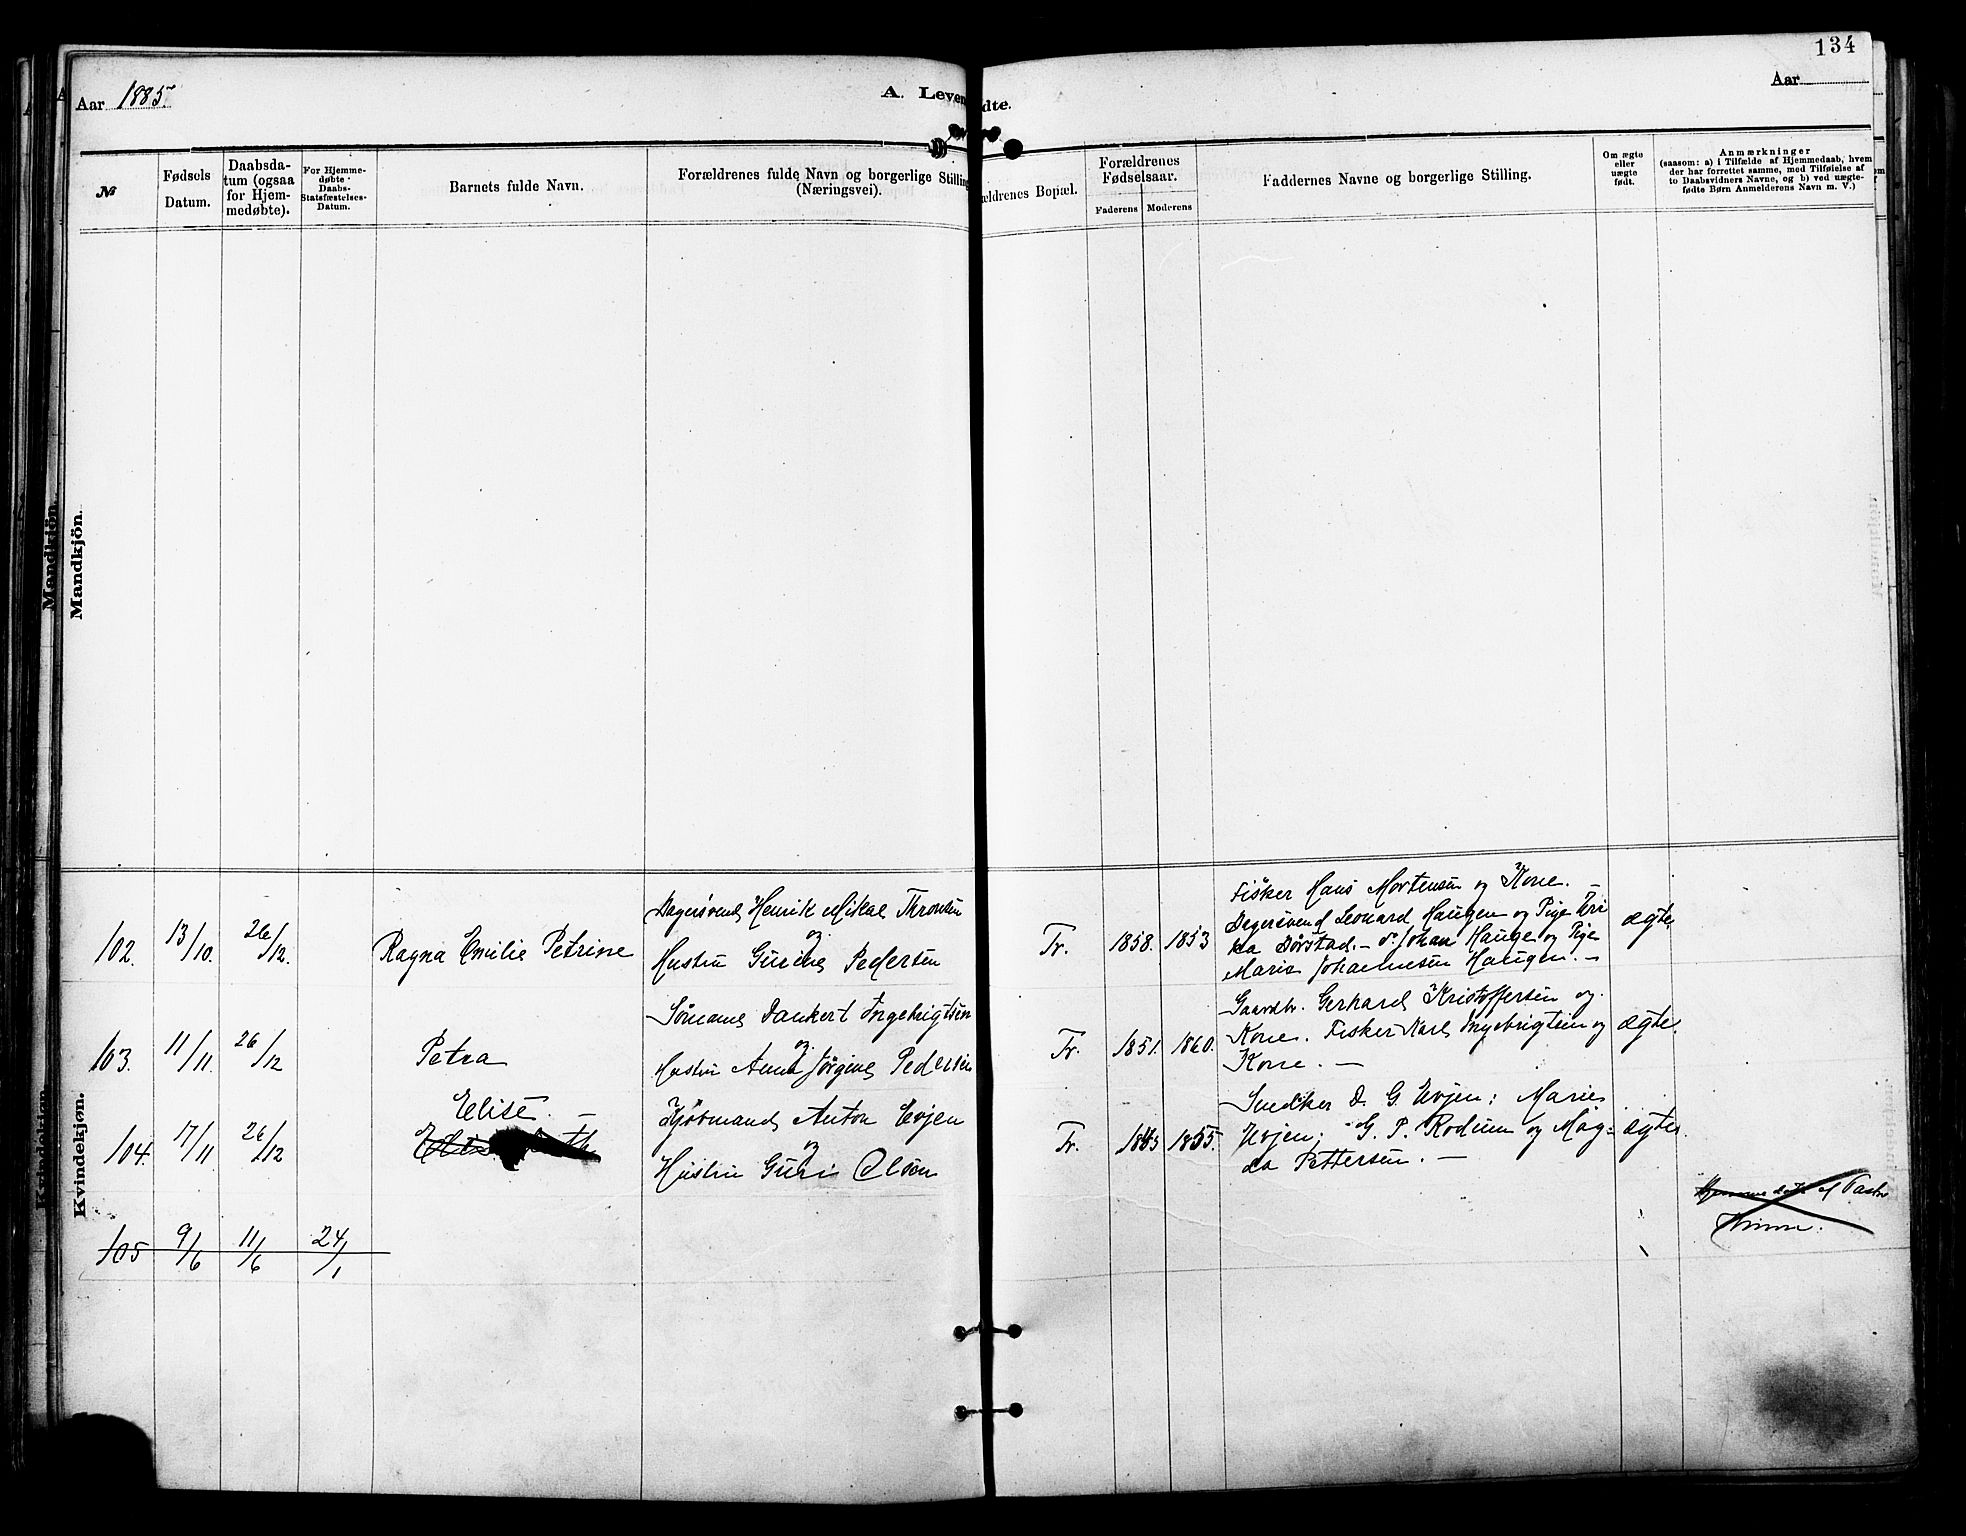 134
Aar 1885.
A. Leven
dte.
Aar
No
Fødsels Datum.
Daabsda-
tum (ogsaa
for Hjem-
medøbte).
For Hjemme-
døbte
Daabs-
Statsfæstelses-
Datum.
Barnets fulde Navn.
Forældrenes fulde Navn og borgerlige Stilling
(Næringsvei).
ældrenes Bopæl.
Forældrenes
Fødselsaar.
Faderens Moderens
Faddernes Navne og borgerlige Stilling.
Om ægte
eller
uægte
født.
Anmærkninger
(saasom: a) i Tilfælde af Hjemmedaab, hvem
der har forrettet samme, med Tilføielse af
to Daabsvidners Navne, og b) ved uægte-
fødte Børn Anmelderens Navn m. V.)
Mandkjön.
Kvindekjøn.
102. 13/10. 26/12.
Ragna Emilie Petrine
Henrik Mikal
og
Hustru Pedersen
Tr. 1858. 1853
Fisker Hans Mortensen og Kone. –
Leonard Haugen og Pige
Johan Hauge og Pige
Marie Johannesen Haugen. –
ægte
103. 11/11. 26/12
Petra
Sömand Dankert Ingebrigtsen
og
Hustru Anna Jörgine Pedersen
Tr. 1851. 1860.
Gaardbr. Gerhard Kristoffersen og
Kone. Fisker Karl Ingebrigtsen og
Kone. –
ægte
104. 17/11 26/12
Elise. –
Kjöbmand Anton Evjen
og
Hustru Guri Olsen
Tr. 1855.
D. G. Evjen; Marie
Evjen; G. P. Rodum og Mag-
da Pettersen. –
ægte
105 9/6 11/6 24/1
af Pastor